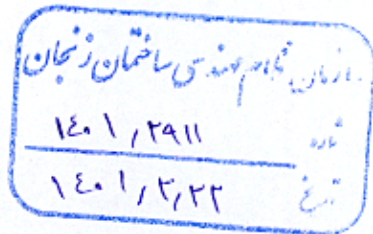 سازمان نظام مهندسی ساختمان زنجان
شماره ۱۴۰۱/۲۹۱۱
تاریخ ۱۴۰۱/۳/۲۲